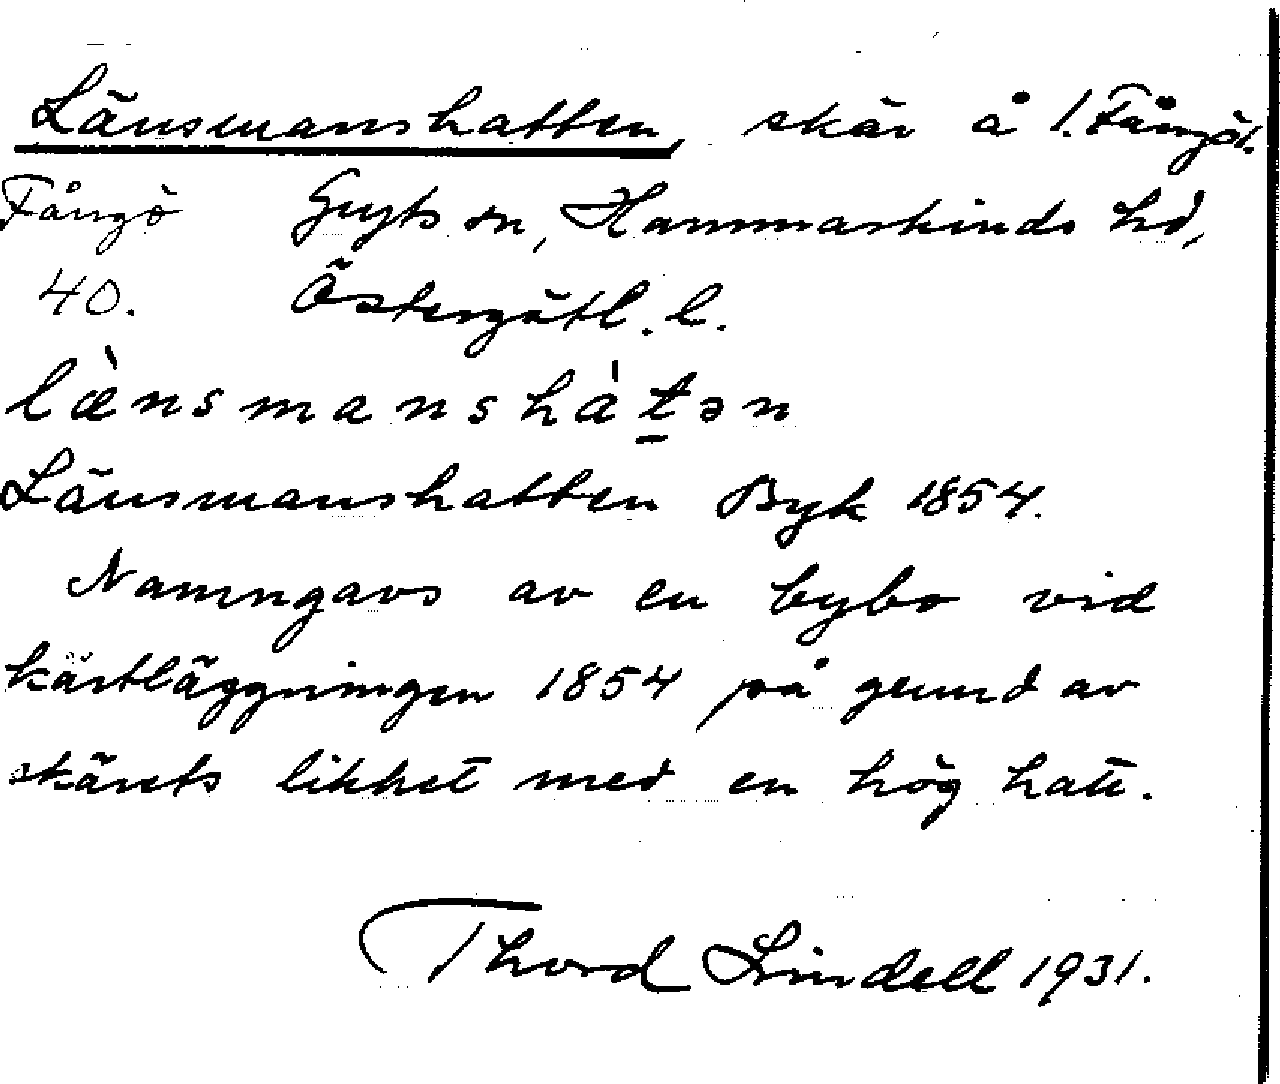 Länsmanshatten, skär å 1. Fångö1.
Fångö Gryts sn, Hammarkinds hd,
40. Östergötl. l.
lænsmanshàtən
Länsmanshatten Byk 1854.
Namngavs av en bybo vid
kartläggningen 1854 på grund av
skärets likhet med en hög hatt.
Thord Lindell 1931.